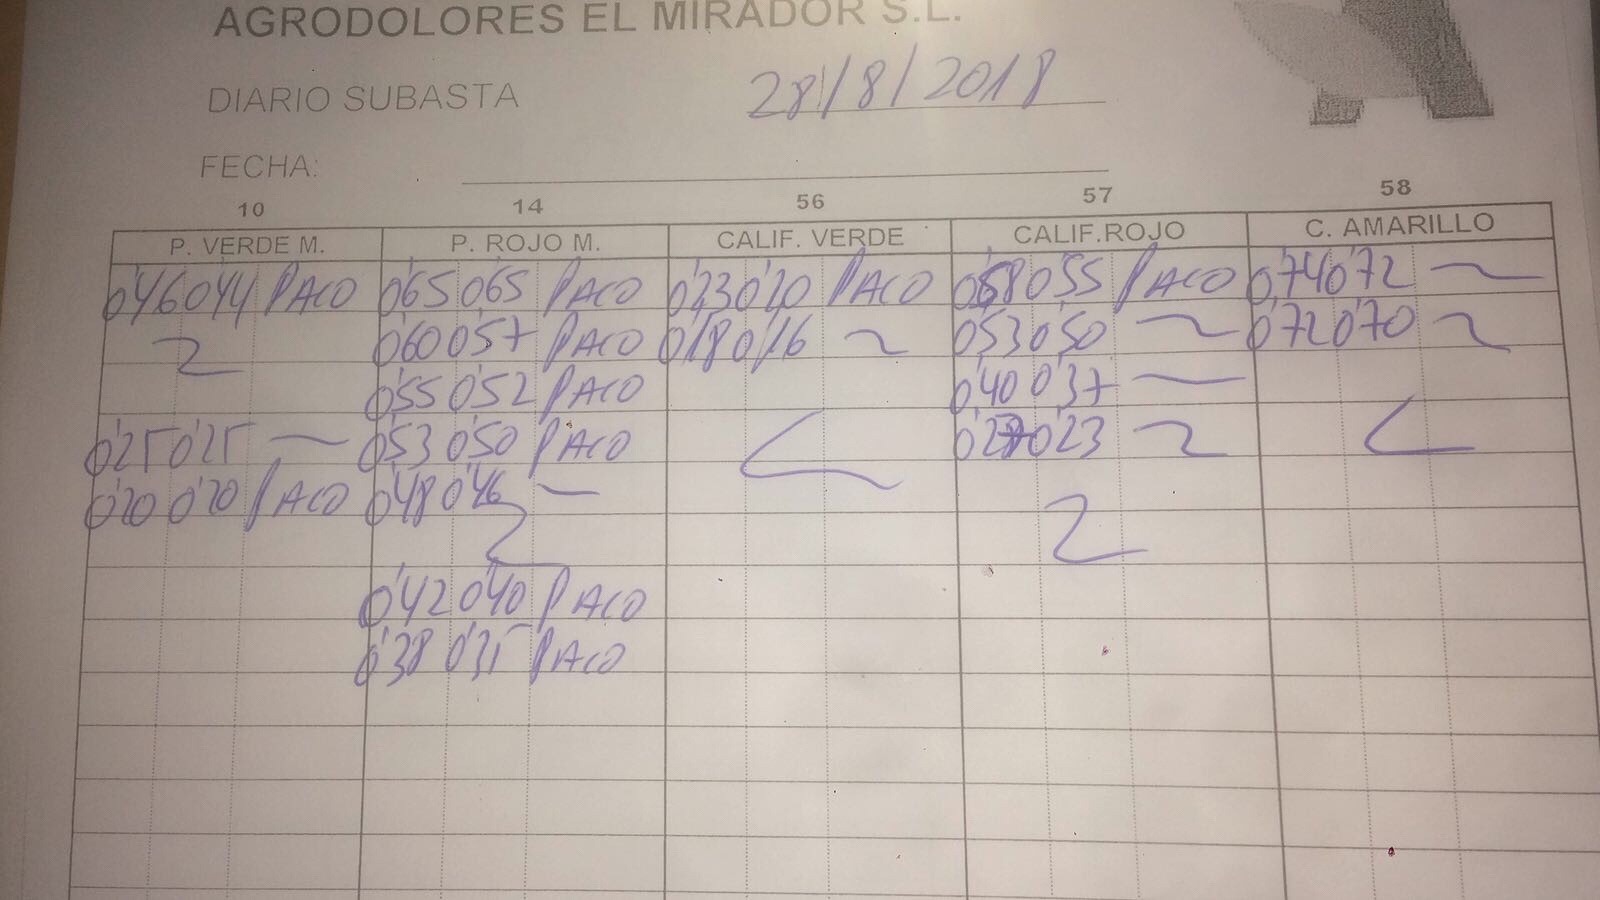 AGRODOLORES EL MIRADOR S.L.
DIARIO SUBASTA 28/8/2018
FECHA:
10 14 56 57 58
P. VERDE M. P. ROJO M. CALIF. VERDE CALIF.ROJO C. AMARILLO
0'46 0'44 PACO 0'65 0'65 PACO 0'23 0'20 PACO 0'58 0'55 PACO 0'74 0'72
0'60 0'57 PACO 0'18 0'16 0'53 0'50 0'72 0'70
0'55 0'52 PACO 0'40 0'37
0'25 0'25 0'53 0'50 PACO 0'23
0'20 0'20 PACO 0'48 0'46
0'42 0'40 PACO
0'38 0'35 PACO